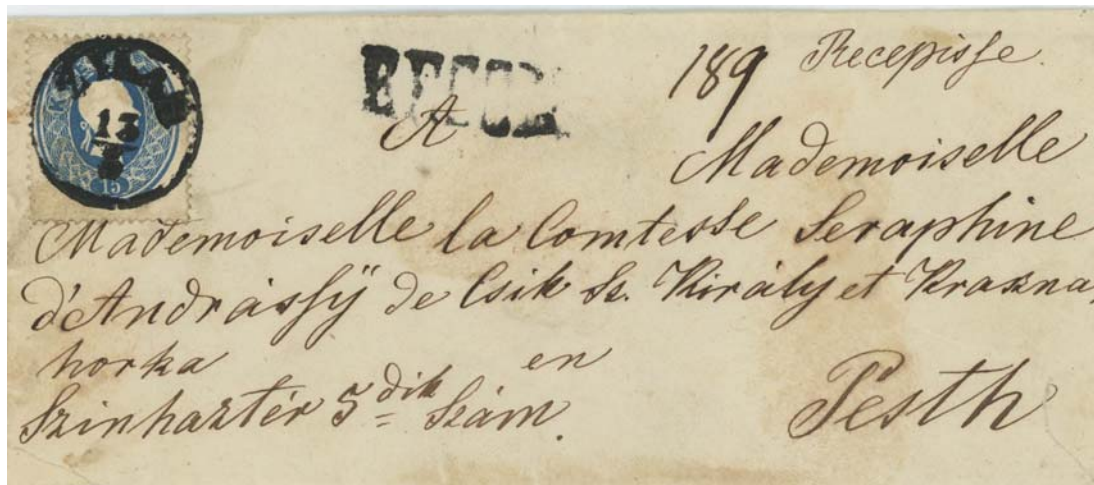 189 Recepisse.
A
Mademoiselle
Mademoiselle la Comtesse Seraphine
d'Andrássÿ de Csik Sz. Király et Krasna,
horka en
Szinháztér 5dik Szám. Pesth
13
15